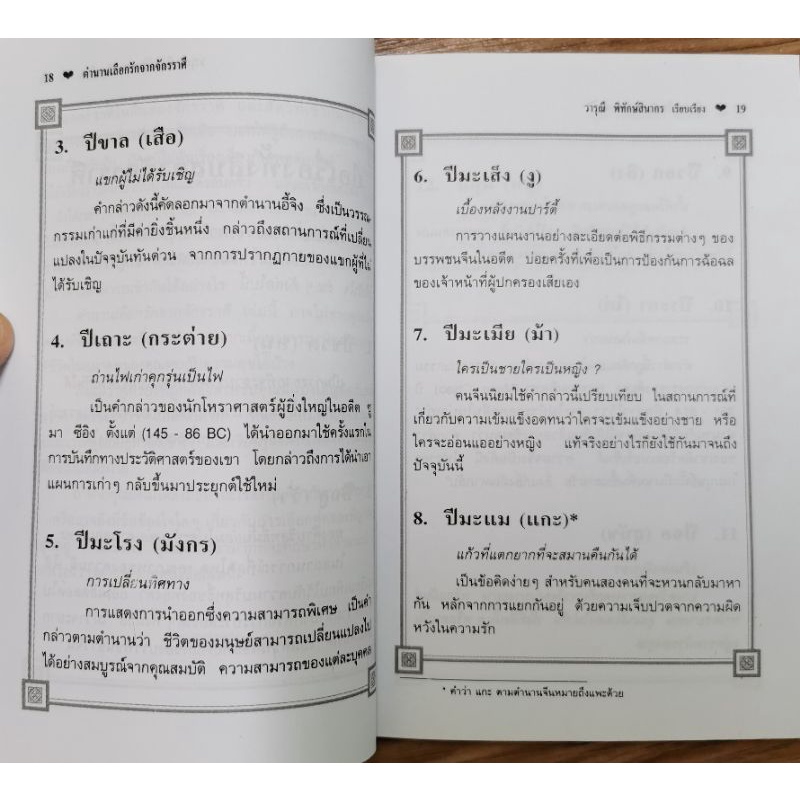 18 ❤ ตำนานเลือกรักจากจักรราศี
3. ปีขาล (เสือ)
แขกผู้ไม่ได้รับเชิญ
คำกล่าวดังนี้คัดลอกมาจากตำนานอี้จิง ซึ่งเป็นวรรณ
กรรมเก่าแก่ที่มีค่ายิ่งชิ้นหนึ่ง กล่าวถึงสถานการณ์ที่เปลี่ยน
แปลงในปัจจุบันทันด่วน จากการปรากฏกายของแขกผู้ที่ไม่
ได้รับเชิญ
4. ปีเถาะ (กระต่าย)
ถ่านไฟเก่าคุกรุ่นเป็นไฟ
เป็นคำกล่าวของนักโหราศาสตร์ผู้ยิ่งใหญ่ในอดีต ซู
มา ซีอิง ตั้งแต่ (145 - 86 BC) ได้นำออกมาใช้ครั้งแรกใน
การบันทึกทางประวัติศาสตร์ของเขา โดยกล่าวถึงการได้นำเอา
แผนการเก่าๆ กลับขึ้นมาประยุกต์ใช้ใหม่
5. ปีมะโรง (มังกร)
การเปลี่ยนทิศทาง
การแสดงการนำออกซึ่งความสามารถพิเศษ เป็นคำ
กล่าวตามตำนานว่า ชีวิตของมนุษย์สามารถเปลี่ยนแปลงไป
ได้อย่างสมบูรณ์จากคุณสมบัติ ความสามารถของแต่ละบุคคล
วารุณี พิทักษ์สินากร เรียบเรียง ❤ 19
6. ปีมะเส็ง (งู)
เบื้องหลังงานปาร์ตี้
การวางแผนงานอย่างละเอียดต่อพิธีกรรมต่างๆ ของ
บรรพชนจีนในอดีต บ่อยครั้งที่เพื่อเป็นการป้องกันการฉ้อฉล
ของเจ้าหน้าที่ผู้ปกครองเสียเอง
7. ปีมะเมีย (ม้า)
ใครเป็นชายใครเป็นหญิง ?
คนจีนนิยมใช้คำกล่าวนี้เปรียบเทียบ ในสถานการณ์ที่
เกี่ยวกับความเข้มแข็งอดทนว่าใครจะเข้มแข็งอย่างชาย หรือ
ใครจะอ่อนแออย่างหญิง แท้จริงอย่างไรก็ยังใช้กันมาจนถึง
ปัจจุบันนี้
8. ปีมะแม (แกะ)*
แก้วที่แตกยากที่จะสมานคืนกันได้
เป็นข้อคิดง่ายๆ สำหรับคนสองคนที่จะหวนกลับมาหา
กัน หลักจากการแยกกันอยู่ ด้วยความเจ็บปวดจากความผิด
หวังในความรัก
* คำว่า แกะ ตามตำนานจีนหมายถึงแพะด้วย